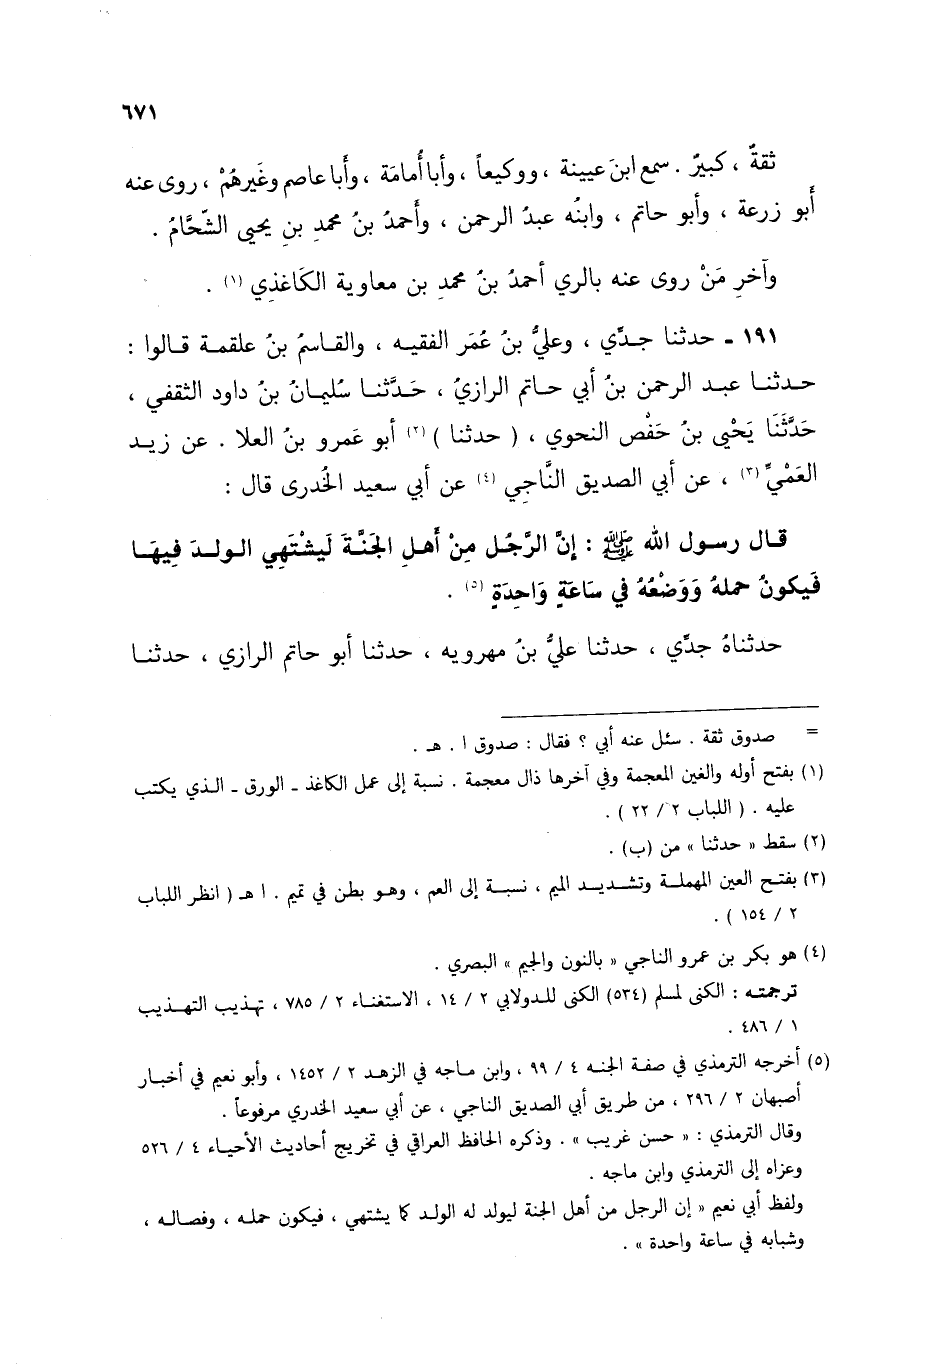 ٦٧١
ثقةٌ ، كبيرٌ . سمع ابنَ عيينة ، ووكيعاً ، وأبا أُمامَة ، وأَبا عاصم وغَيرهُمْ ، روى عنه
أَبو زرعة ، وأبو حاتم ، وابنُه عبدُ الرحمن ، وأَحمدُ بنُ محمدِ بنِ يحيى الشَّحَّامُ .
وآخرِ مَنْ روى عنه بالري أحمدُ بنُ محمدِ بن معاوية الكَاغذي (١) .
١٩١ ـ حدثنا جدَّي ، وعليُّ بنُ عُمَر الفقيه ، والقاسمُ بنُ علقمة قالوا :
حدثنا عبد الرحمن بنُ أبي حاتم الرازيُ ، حَدَّثنا سُليمانُ بنُ داود الثقفي ،
حَدَّثَنَا يَحْيى بنُ حَفْص النحوي ، ( حدثنا ) (٢) أبو عَمرو بنُ العلا . عن زيد
العَمْيِّ (٣) ، عن أبي الصديق النَّاجي (٤) عن أبي سعيد الخُدرى قال :
قال رسول الله ﷺ : إنَّ الرَّجُل مِنْ أَهلِ الجَنَّةَ لَيشْتَهِي الولدَ فِيهَا
فَيكونُ حملهُ وَوَضْعُهُ في سَاعَةٍ وَاحِدَةٍ (٥) .
حدثناهُ جدَّي ، حدثنا عليُّ بنُ مهرويه ، حدثنا أبو حاتم الرازي ، حدثنا
= صدوق ثقة . سئل عنه أبي ؟ فقال : صدوق ا . هـ .
(١) بفتح أوله والغين المعجمة وفي آخرها ذال معجمة . نسبة إلى عمل الكاغذ ـ الورق ـ الذي يكتب
عليه . ( اللباب ٢ / ٢٢ ) .
(٢) سقط « حدثنا » من (ب) .
(٣) بفتح العين المهملة وتشديد الميم ، نسبة إلى العم ، وهو بطن في تميم . ا هـ ( انظر اللباب
٢ / ١٥٤ ) .
(٤) هو بكر بن عمرو الناجي « بالنون والجيم » البصري .
ترجمته : الكنى لمسلم (٥٣٤) الكنى للدولابي ٢ / ١٤ ، الاستغناء ٢ / ٧٨٥ ، تهذيب التهذيب
١ / ٤٨٦ .
(٥) أخرجه الترمذي في صفة الجنه ٤ / ٩٩ ، وابن ماجه في الزهد ٢ / ١٤٥٢ ، وأبو نعيم في أخبار
أصبهان ٢ / ٢٩٦ ، من طريق أبي الصديق الناجي ، عن أبي سعيد الخدري مرفوعاً .
وقال الترمذي : « حسن غريب » . وذكره الحافظ العراقي في تخريج أحاديث الأحياء ٤ / ٥٢٦
وعزاه إلى الترمذي وابن ماجه .
ولفظ أبي نعيم « إن الرجل من أهل الجنة ليولد له الولد كما يشتهي ، فيكون حمله ، وفصاله ،
وشبابه في ساعة واحدة » .